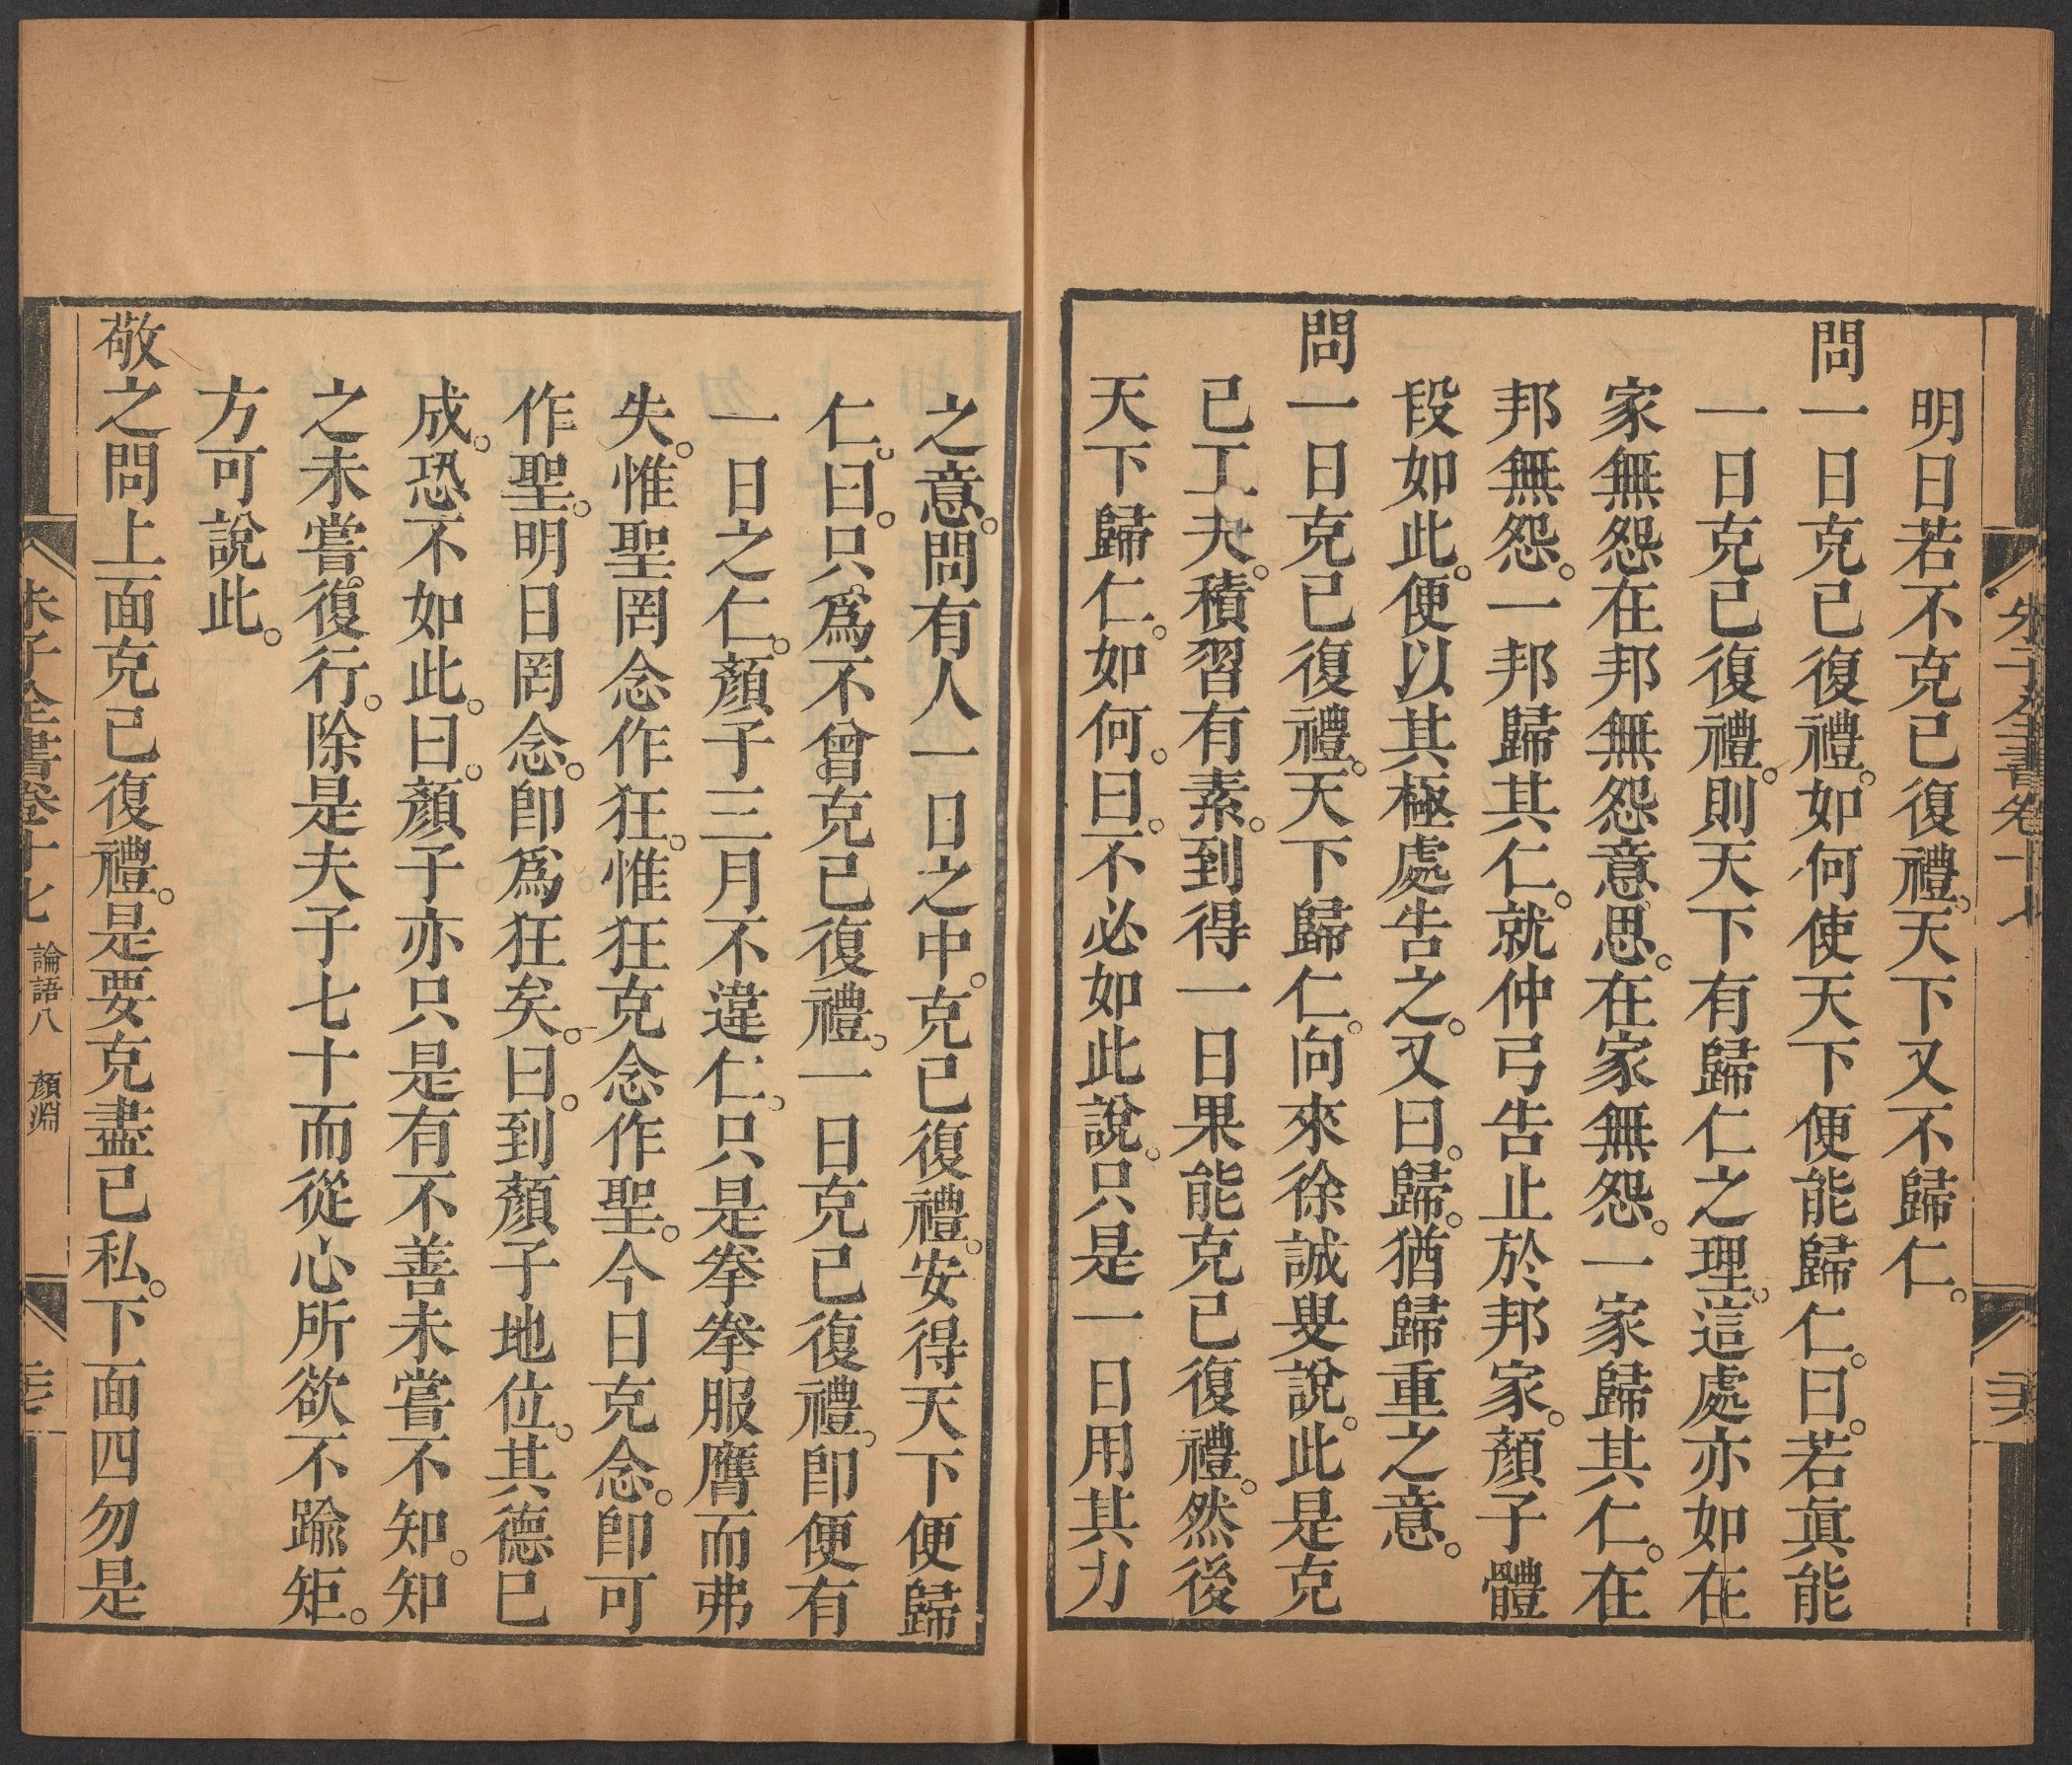 朱子全書卷十七
明日若不克己復禮。天下又不歸仁。
問一日克己復禮。如何使天下便能歸仁。曰。若眞能
一日克己復禮。則天下有歸仁之理。這處亦如在
家無怨在邦無怨意思。在家無怨。一家歸其仁。在
邦無怨。一邦歸其仁。就仲弓告止於邦家。顏子體
段如此。便以其極處告之。又曰。歸。猶歸重之意。
問一日克己復禮。天下歸仁。向來徐誠叟說。此是克
己工夫。積習有素。到得一日果能克己復禮。然後
天下歸仁。如何。曰。不必如此說。只是一日用其力
之意。問有人一日之中。克己復禮。安得天下便歸
仁。曰。只爲不曾克己復禮。一日克己復禮。卽便有
一日之仁。顏子三月不違仁。只是拳拳服膺而弗
失。惟聖罔念作狂。惟狂克念作聖。今日克念。卽可
作聖。明日罔念。卽爲狂矣。曰。到顏子地位。其德已
成。恐不如此。曰。顏子亦只是有不善未嘗不知。知
之未嘗復行。除是夫子七十而從心所欲不踰矩。
方可說此。
敬之問上面克己復禮。是要克盡己私。下面四勿是
朱子全書卷十七 論語八 顏淵